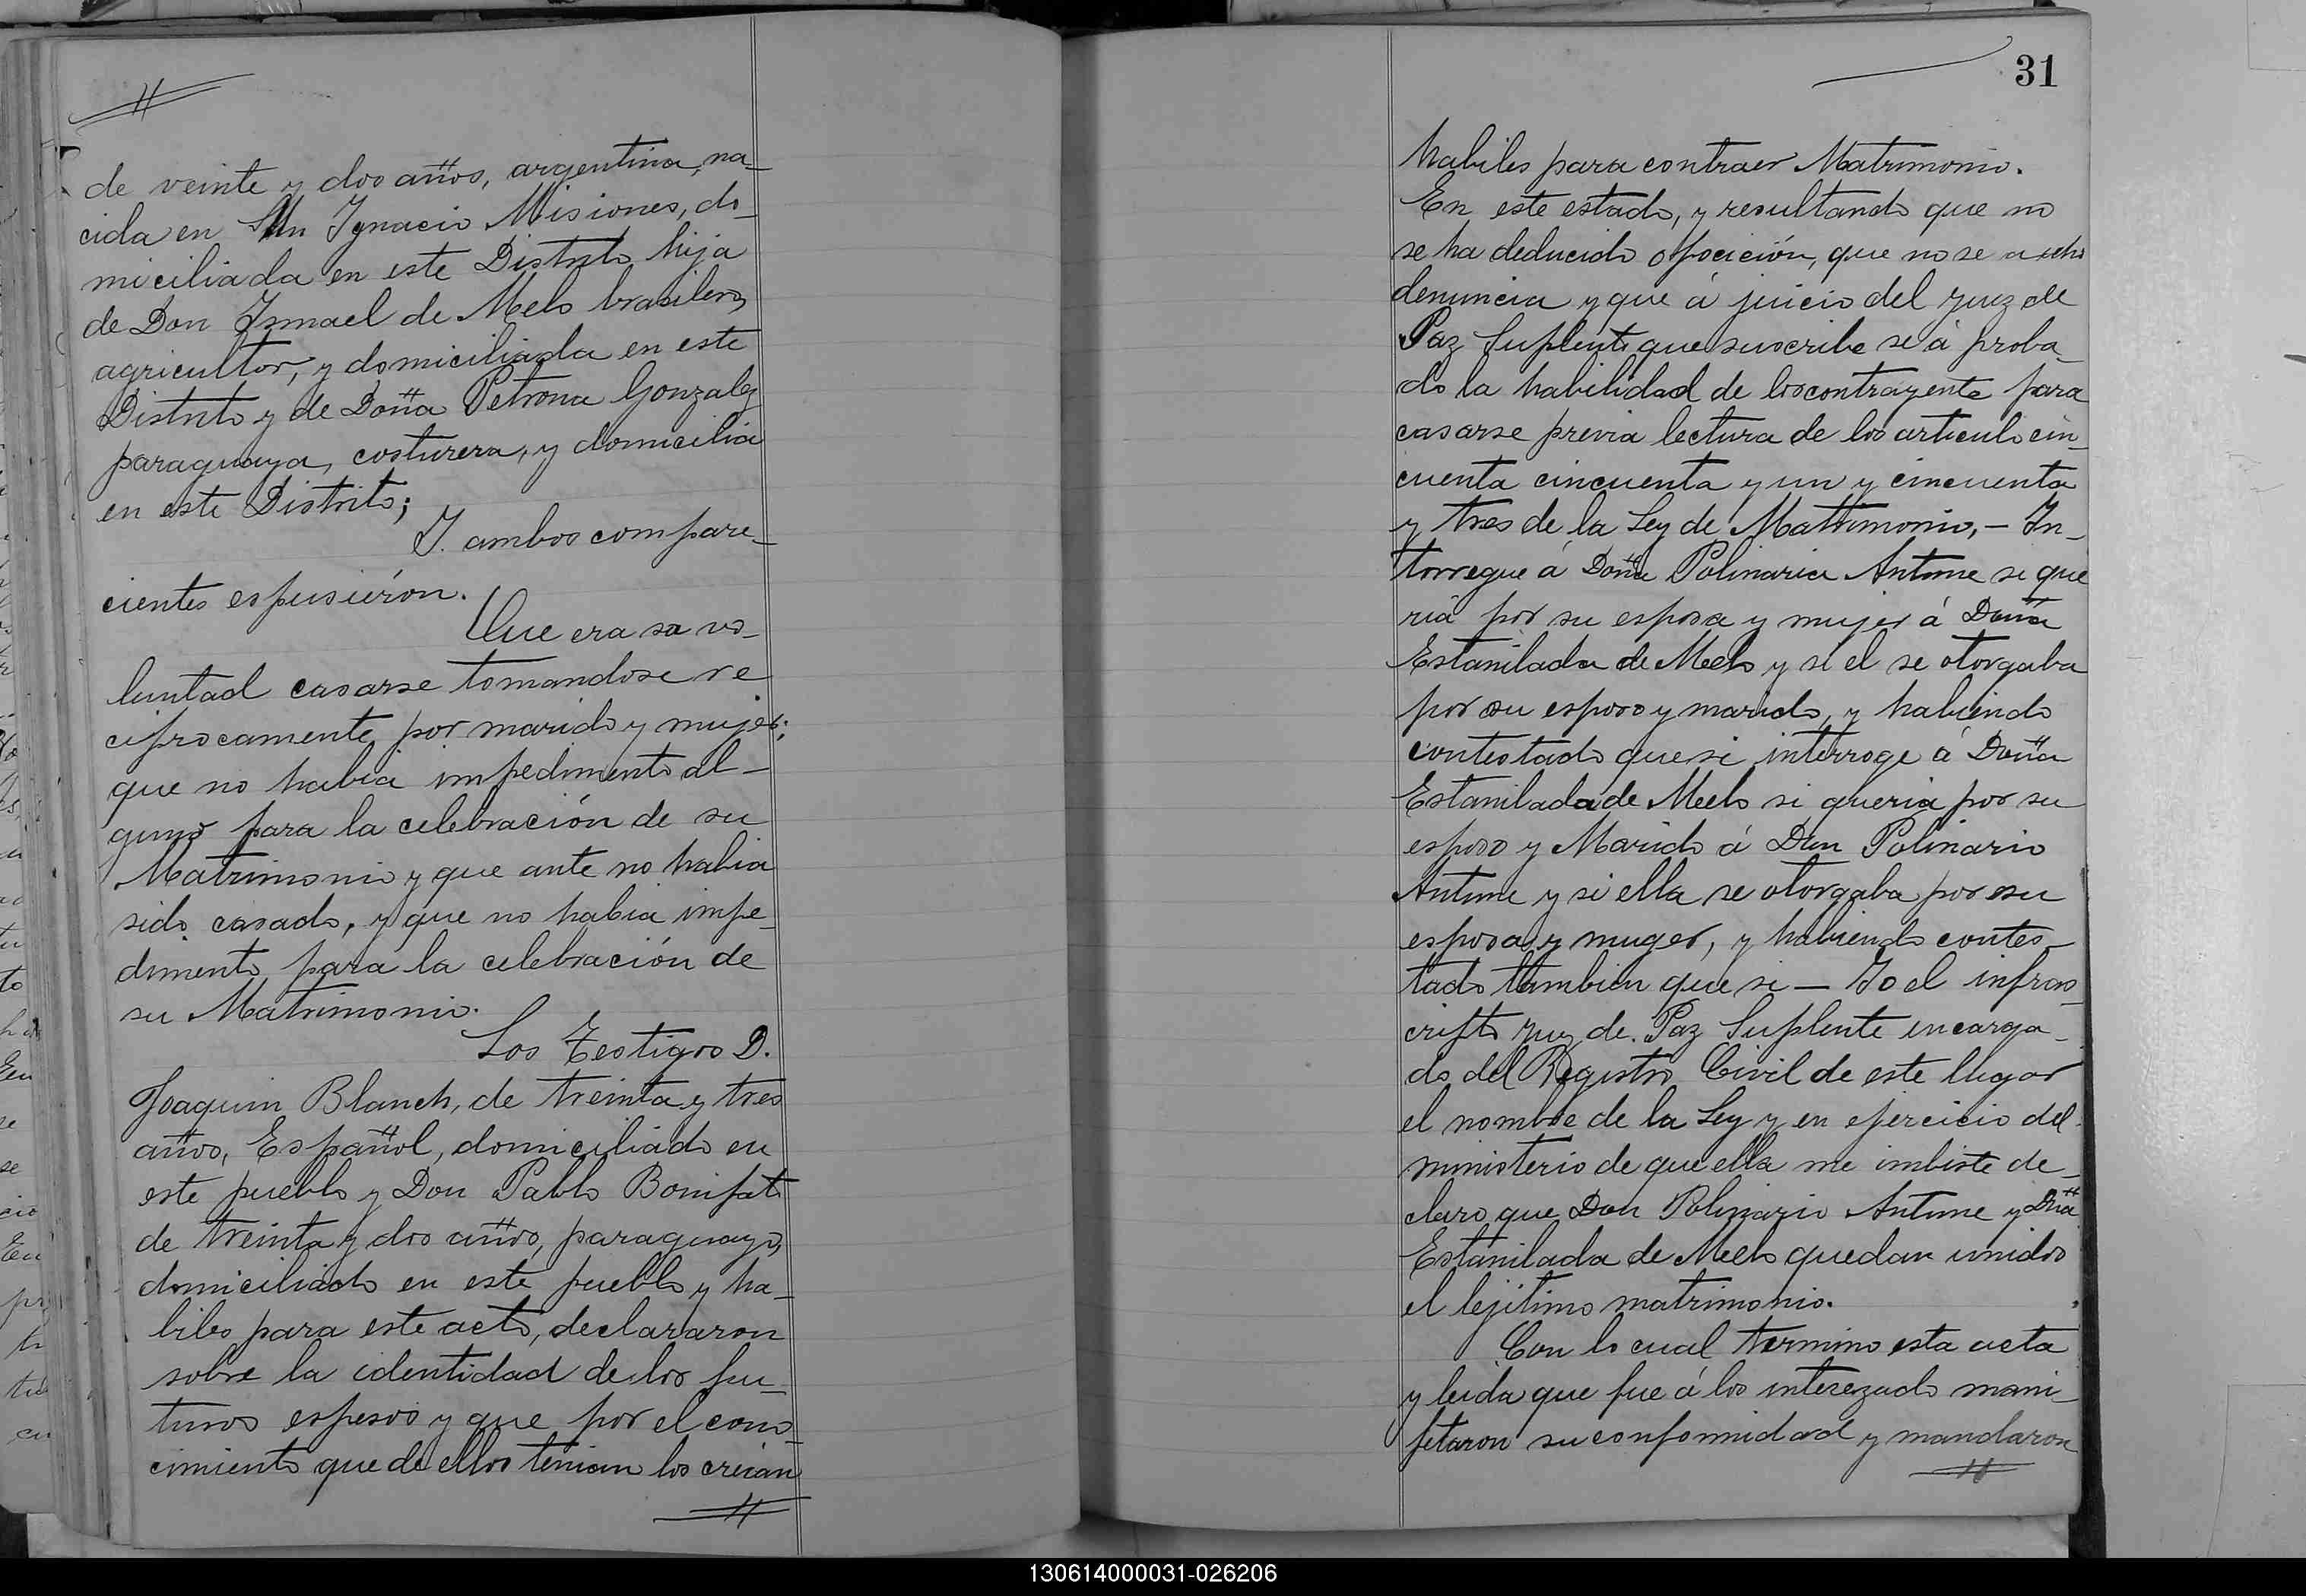 de veinte y dos años, argentina, na-
cida en San Ygnacio Misiones, do-
miciliada en este Distrito hija
de Don Ismael de Melo brasilero,
agricultor, y domiciliada en este
Distrito y de Doña Petrona Gonzalez
paraguaya, costurera, y domicilia
en este Distrito;
Y. ambos compare-
cientes espusierón.
Que era sa vo-
luntad casarse tomandose re
ciprocamente por marido y mujer;
que no habia impedimento al-
guno para la celebración de su
Matrimonio y que ante no habia
sido casado, y que no habia impe-
dimento para la celebración de
su Matrimonio.
Los Testigos D.
Joaquin Blanch, de treinta y tres
años, Español, domiciliado en
este pueblo y Don Pablo Bonifat
de treinta y dos años, paraguayo,
domiciliado en este pueblo y ha-
biles para este acto, declararon
sobre la identidad de los fu-
turos espesos y que por el cono-
cimiento que de ellos tenian los creian
31
habiles para contraer Matrimonio.
En este estado, y resultando que no
se ha deducido opocición, que no se a echo
denuncia y que á juicio del Juez de
Paz Suplente que suscribe se á proba-
do la habilidad de los contrayente para
casarse previa lectura de los articulo cin-
cuenta cincuenta y un y cincuenta
y tres de la Ley de Matrimonio, - In-
torregue á Doña Polinaria Antune si que
riá por su esposa y mujer á Doña
Estanilada de Meelo y si el se otorgaba
por su esposo y marido, y habiendo
contestado que si interroge á Doña
Estanilada de Meelo si queria por su
esposo y Marido á Don Polinario
Antune y si ella se otorgaba por su
esposa y muger, y habiendo contes-
tado tambien que si - Yo el infras-
cripto Juez de Paz Suplente encarga-
do del Registro Civil de este lugar
el nombre de la Ley y en ejercicio del
ministerio de que ella me imbiste de-
claro que Don Polinario Antune y Dña
Estanilada de Meelo quedan unidos
el lejitimo matrimonio.
Con lo cual termino esta acta
y leida que fue á los interezado mani-
fetaron su conformidad y mandaron
130614000031-026206